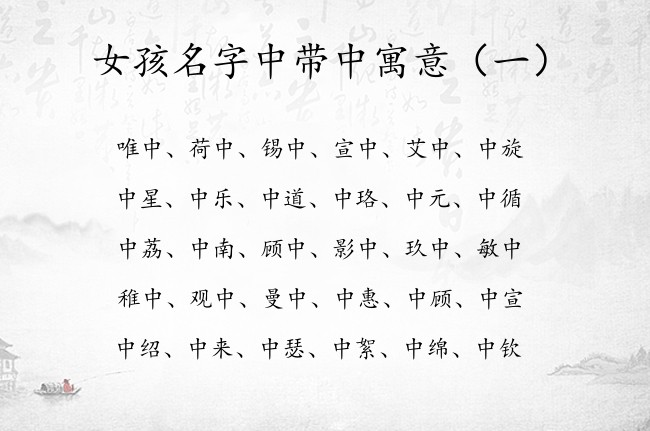 女孩名字中带中寓意（一）
唯中、荷中、锡中、宣中、艾中、中旋
中星、中乐、中道、中珞、中元、中循
中荔、中南、顾中、影中、玖中、敏中
稚中、观中、曼中、中惠、中顾、中宣
中绍、中来、中瑟、中絮、中绵、中钦